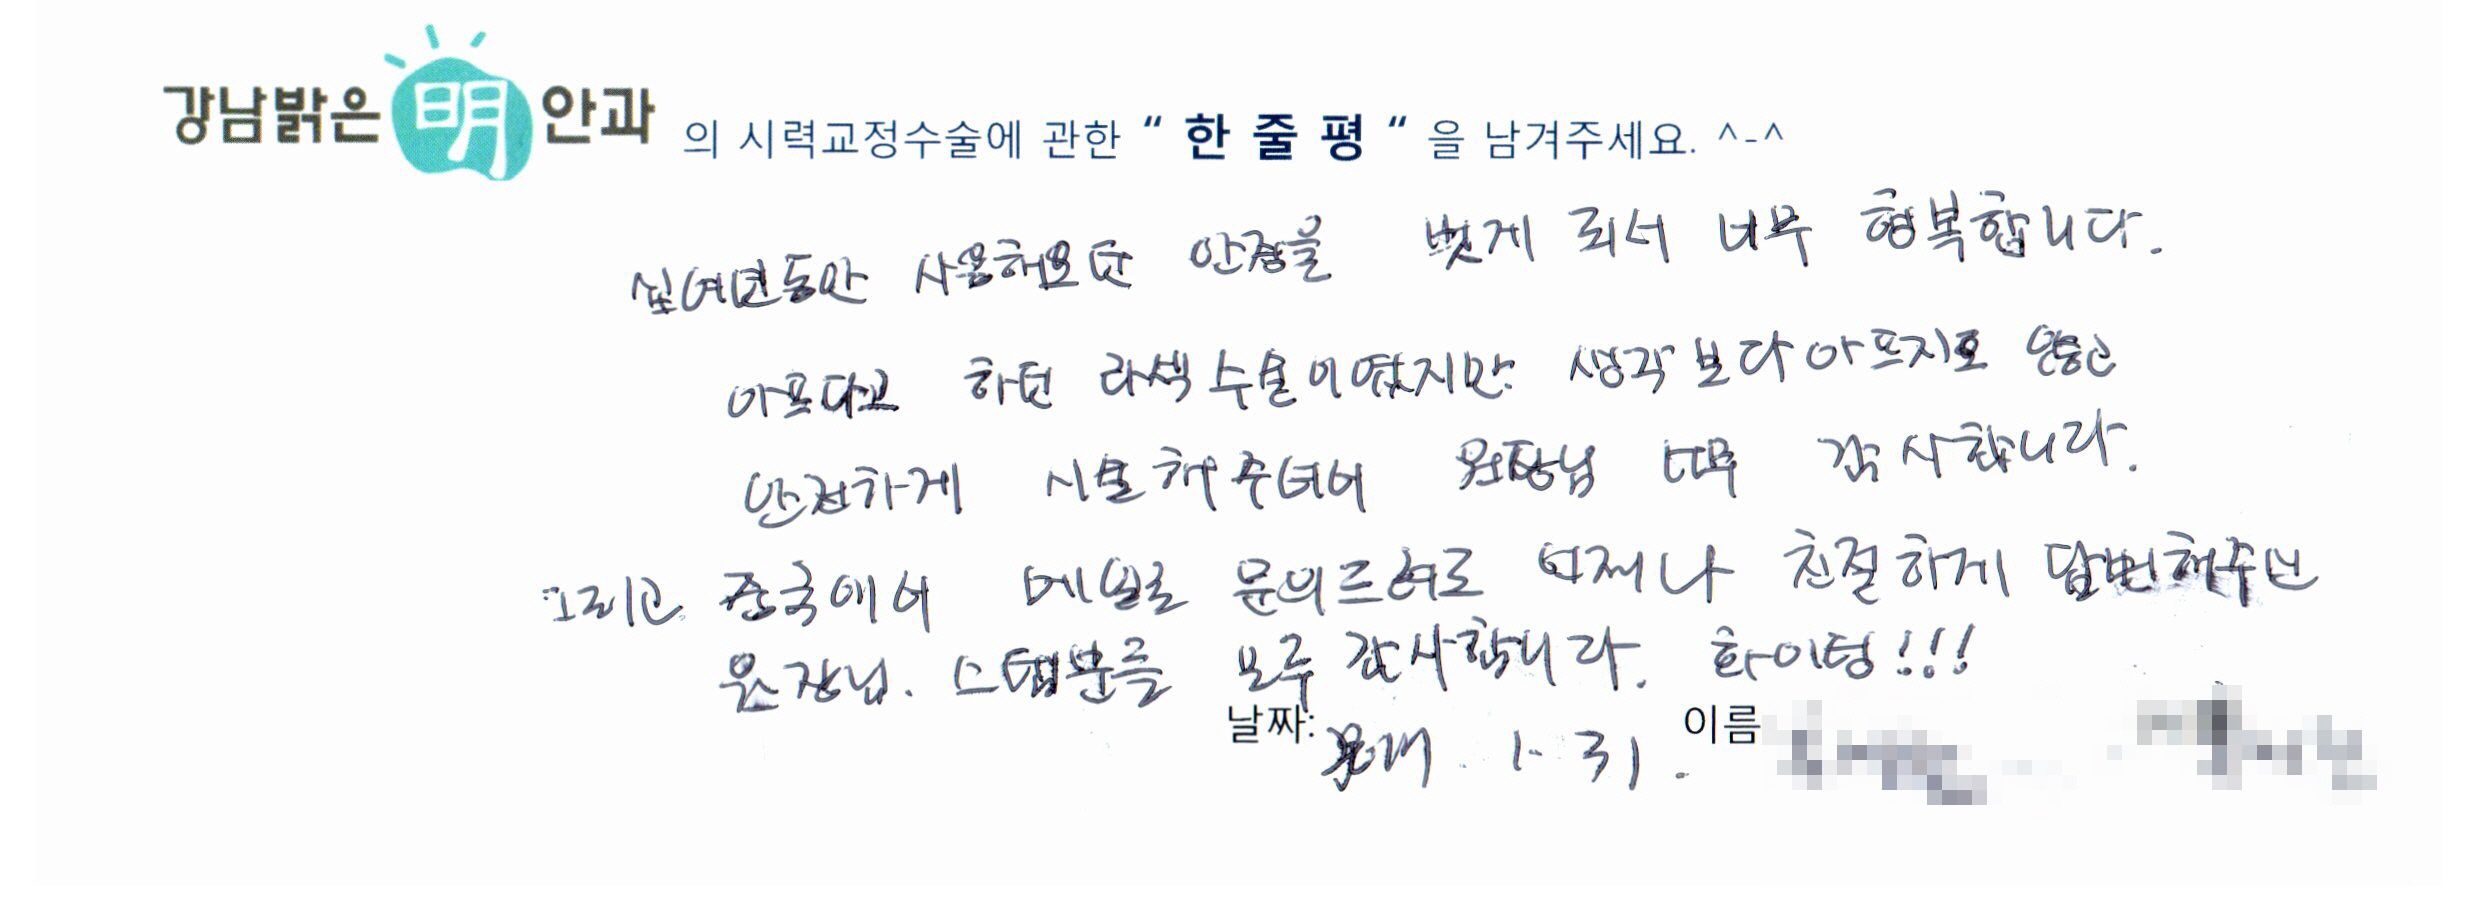 강남밝은明안과 의 시력교정수술에 관한 “ 한 줄 평 “ 을 남겨주세요. ^-^
십여년동안 사용해오던 안경을 벗게 되서 너무 행복합니다.
아프다고 하던 라섹수술이였지만 생각보다 아프지도 않고
안전하게 시술해주셔서 원장님 너무 감사합니다.
그리고 중국에서 메일로 문의드려도 언제나 친절하게 답변해주신
원장님. 스탭분들 모두 감사합니다. 화이팅!!!
날짜: 1. 31. 이름